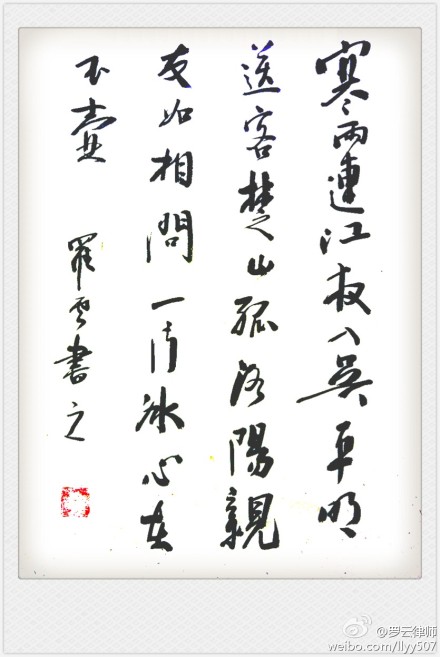 寒雨連江夜入吳平明
送客楚山孤洛陽親
友如相問一片冰心在
玉壺 羅雲書之
@罗云律师
weibo.com/llyy507